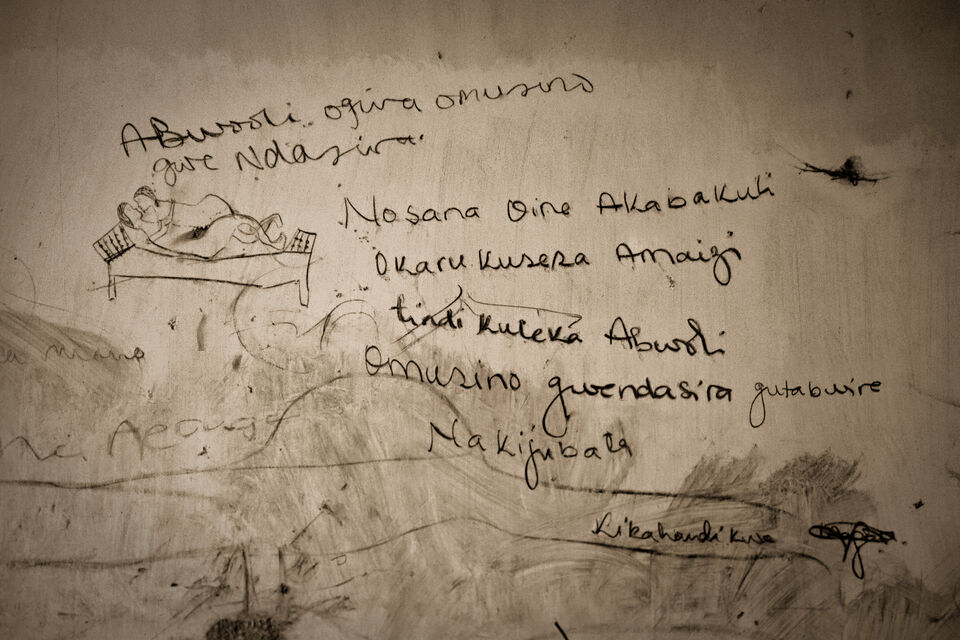 ABwooli ogira omusino
gwe Ndasira
Nosana Oine Akabakuli
Okaru kusesa Amaizi
tindi kuleka Abwoli
Omusino gwendasira gutabwire
Na kijubali
Kikahandikwa